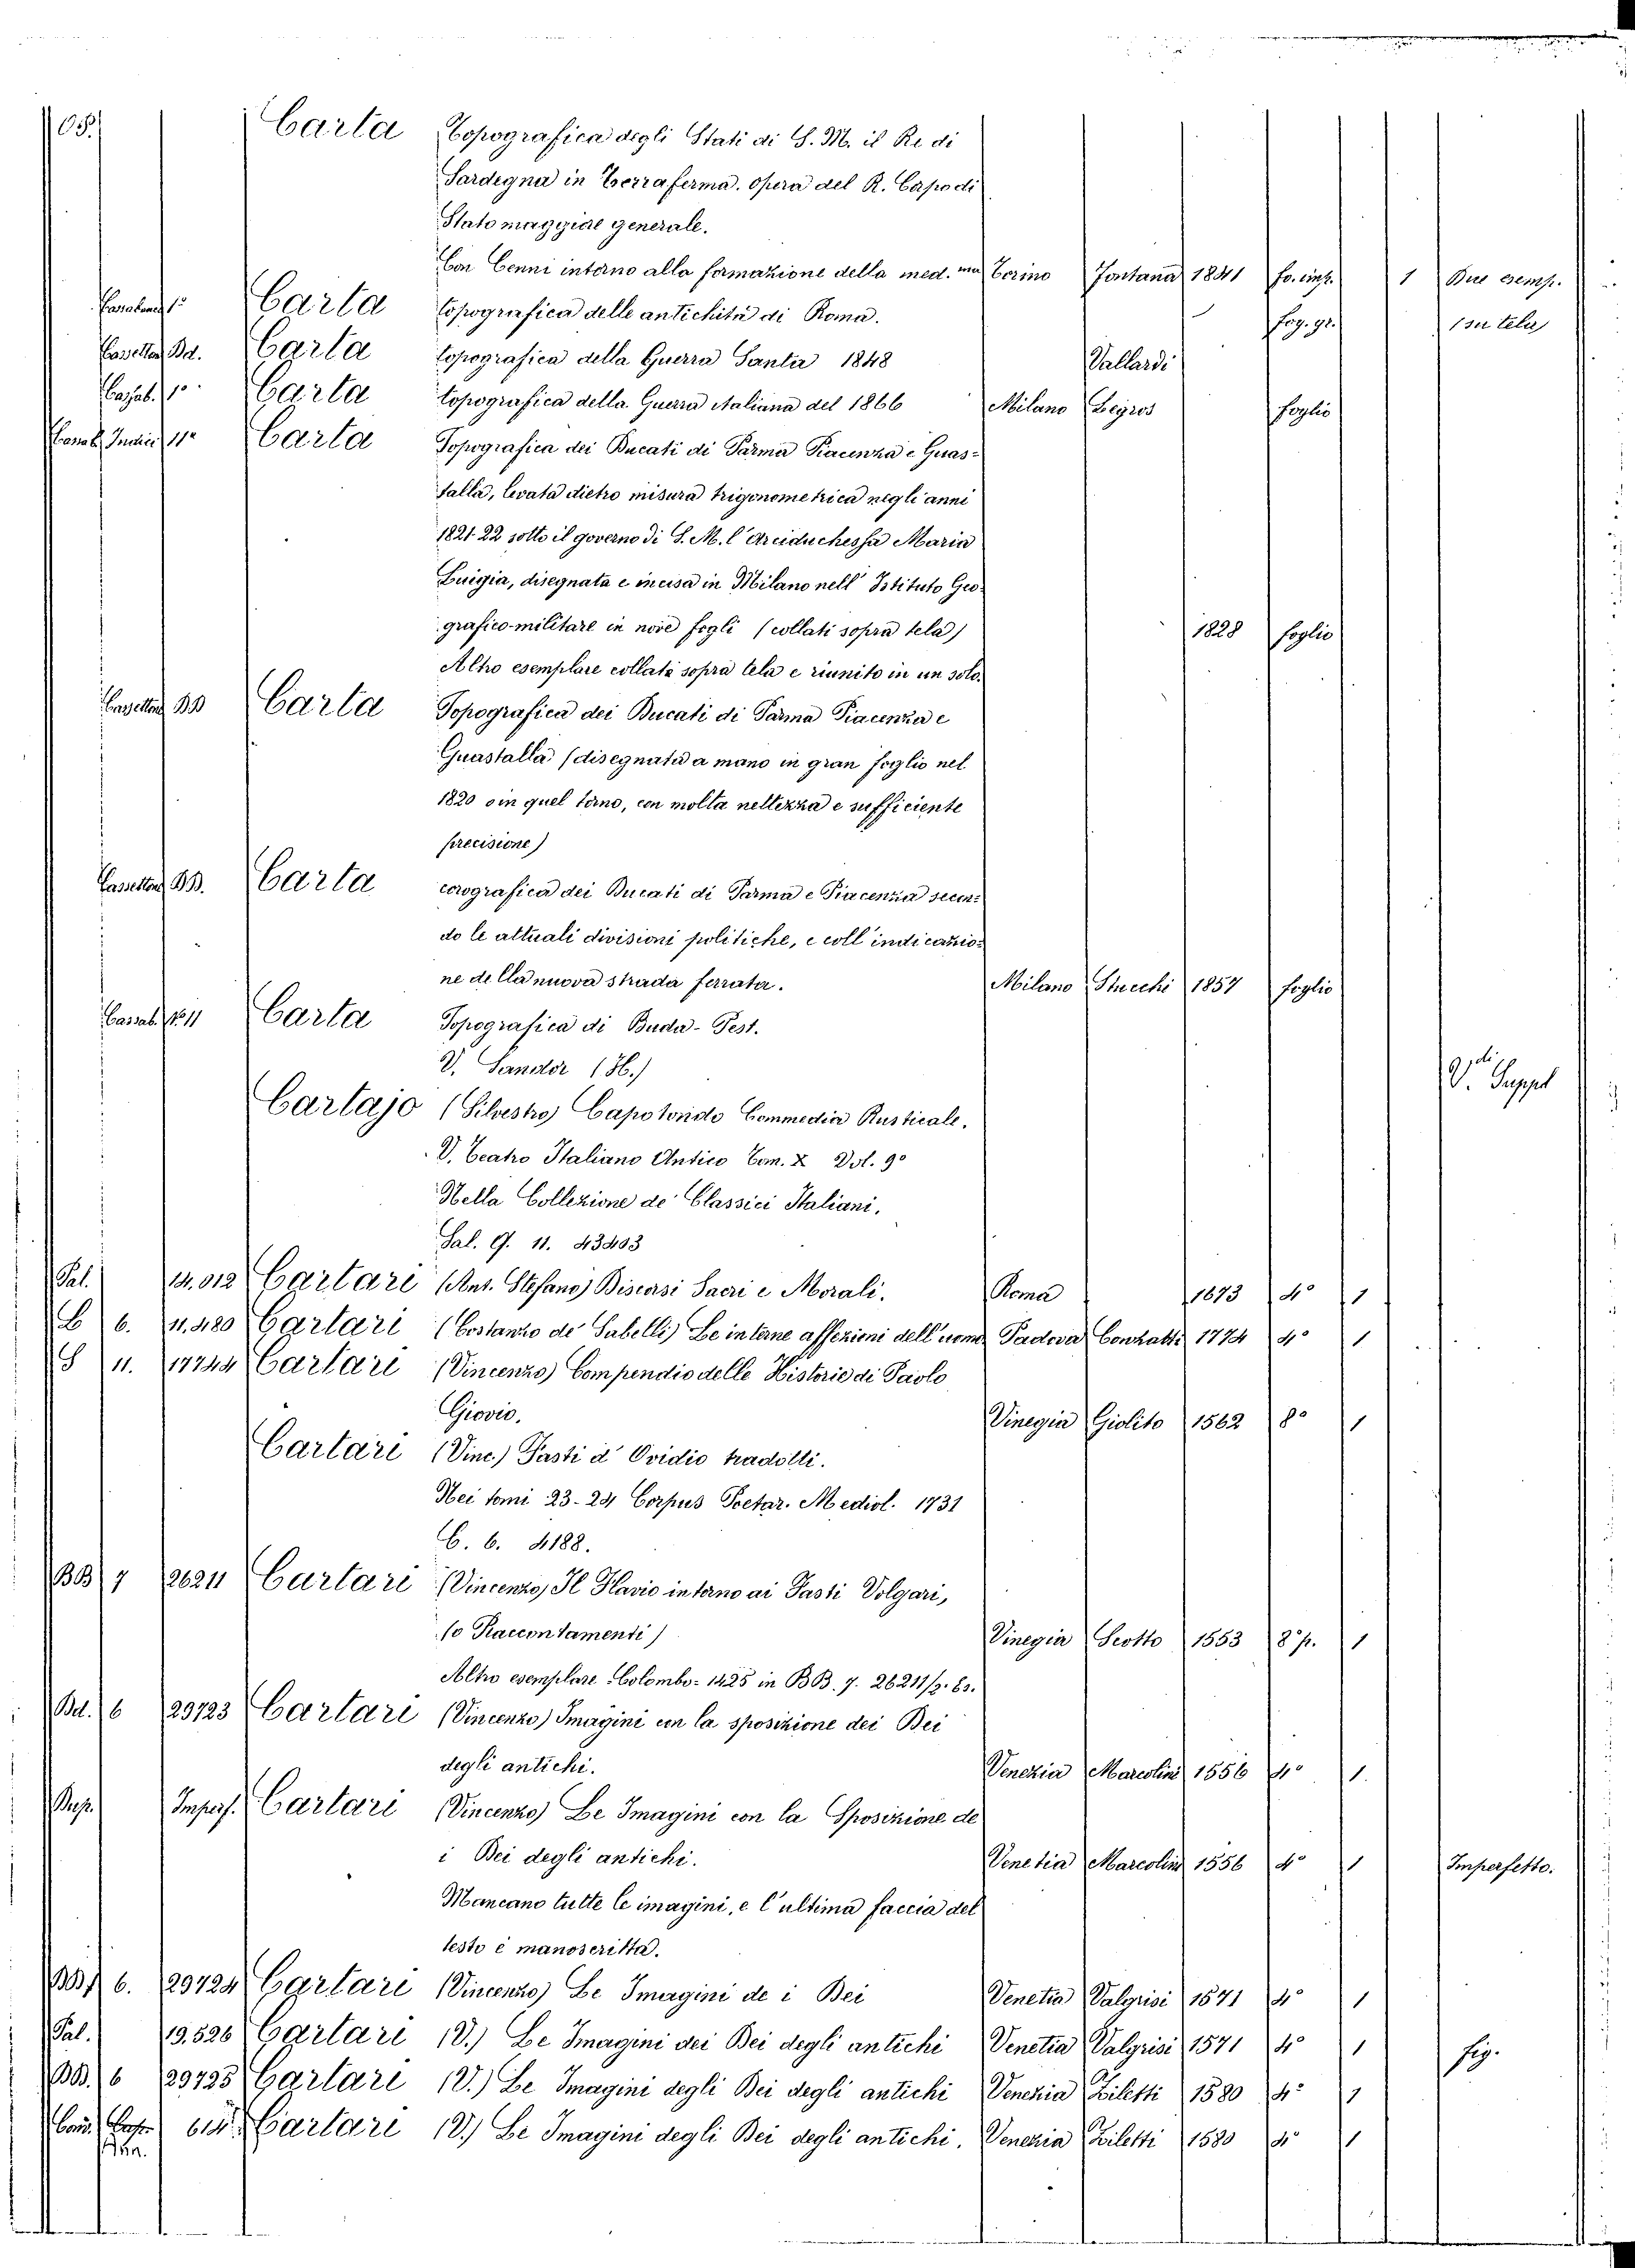 105.
Carta Topografica degli Stati di S. M. il Re di
Sardegna in Terraferma. Opera del R. Capo di
Stato maggiore generale.
Con Cenni intorno alla formazione della med. ma Torino Fontana 1841 fo. imp. 1 Due esemp.
Carta topografica delle antichità di Roma. fog. gr. (su tela)
Cassettone Bd. Carta topografica della Guerra Santa 1848 Vallardi
Cassab. 1º Carta topografica della Guerra Italiana del 1866 Milano Legros foglio
11º Carta Topografica dei Ducati di Parma Piacenza e Guas=
talla, levata dietro misura trigonometrica negli anni
1821-22 sotto il governo di S. M. l'Arciduchessa Maria
Luigia, disegnata e incisa in Milano nell' Istituto Geo-
grafico-militare in nove fogli (collati sopra tela) 1828 foglio
Altro esemplare collato sopra tela e riunito in un solo.
Cassettone BB Carta Topografica dei Ducati di Parma Piacenza e
Guastalla (disegnata a mano in gran foglio nel
1820 o in quel torno, con molta nettezza e sufficiente
precisione)
Cassettone BB. Carta corografica dei Ducati di Parma e Piacenza secon=
do le attuali divisioni politiche, e coll'indicazio=
ne della nuova strada ferrata. Milano Stucchi 1857 foglio
Cassab. Nº 11 Carta Topografica di Buda-Pest.
V. Sandor (H.) V. di Suppel
Cartajo (Silvestro) Capotondo Commedia Rusticale.
V. Teatro Italiano Antico Tom. X Vol. 9º
Nella Collezione de' Classici Italiani.
Sal. G. 11. 43403
Pal. 14.012 Cartari (Ant. Stefano) Discorsi Sacri e Morali. Roma 1673 4º 1
L 6. 11.480 Cartari (Costanzo de' Sabelli) Le interne affezioni dell'uomo Padova Conzatti 1774 4º 1
S 11. 17744 Cartari (Vincenzo) Compendio delle Historie di Paolo
Giovio. Vinegia Giolito 1562 8º 1
Cartari (Vinc.) Fasti d' Ovidio tradotti.
Nei tomi 23-24 Corpus Poetar. Mediol. 1731
C. 6. 4188.
BB 7 26211 Cartari (Vincenzo) Il Flavio intorno ai Fasti Volgari,
(o Raccontamenti) Vinegia Scotto 1553 8º p. 1
Altro esemplare Colombo-1425 in BB. 7. 26211/2. bs.
Bd. 6 29723 Cartari (Vincenzo) Imagini con la sposizione dei Dei
degli antichi. Venezia Marcolini 1556 4º 1.
Dup. Imperf. Cartari (Vincenzo) Le Imagini con la Sposizione de
i Dei degli antichi. Venetia Marcolini 1556 4º 1 Imperfetto.
Mancano tutte le imagini, e l'ultima faccia del
testo è manoscritta.
BB 6. 29724 Cartari (Vincenzo) Le Imagini de i Dei Venetia Valgrisi 1571 4º 1
Pal. 19.526 Cartari (V.) Le Imagini dei Dei degli antichi Venetia Valgrisi 1571 4º 1 fig.
BB. 6 29725 Cartari (V.) Le Imagini degli Dei degli antichi Venezia Ziletti 1580 4º 1
614 Cartari (V.) Le Imagini degli Dei degli antichi. Venezia Ziletti 1580 4º 1